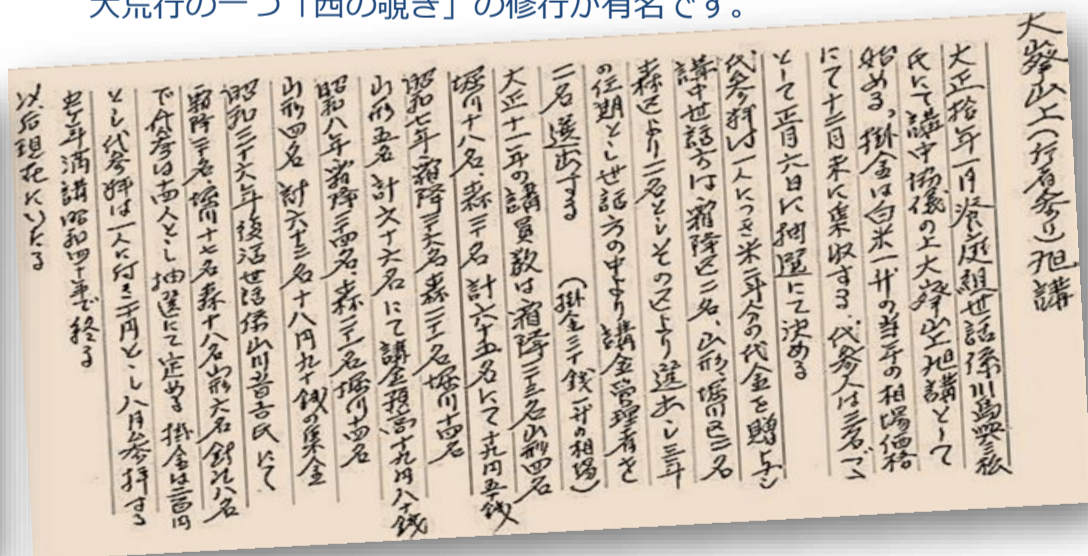 大荒行の一つ「西の覗き」の修行が有名です。
大峯山上(行者参り)旭講
大正拾年一月 組世話係川
氏にて講中協儀の上大峯山上旭講として
始める。掛金は白米一升の当年の相場価格
にて十二月末に集収する、代参人は三名づゝ
として正月六日に抽選にて決める
代参拝は一人につき米二斗分の代金を贈
講中世話方は霜降区二名、山形、堀川区二名
森区より二名としその区より選出し三年
の任期とし世話方の中より講金管理者を
二名選出する (掛金三十銭一升の相場)
大正十一年の講員数は霜降二十三名山形四名
堀川十八名、森二十名 計六十五名にて十九円五十銭
昭和七年霜降二十六名森二十一名堀川十四名
山形五名 計六十六名にて講金預高十九円八十銭
昭和八年霜降二十四名、森二十一名堀川十四名
山形四名 計六十三名十八円九十銭の集金
昭和三十六年後活世話係山川音吉氏にて
霜降二十名 堀川十七名 森十八名山形六名 八名
下代参は 人とし抽選にて定める 掛金は二百円
とし代参拝は一人に付き二千円とし八月参拝する
年満講昭和四十年で終る
以后現在にいたる